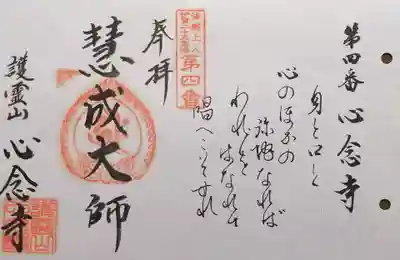 第四番 心念寺
身と口と
心のほかの
弥陀なれば
われをはなれて
唱へこそすれ
第四番
奉拝
慧成大師
護霊山 心念寺